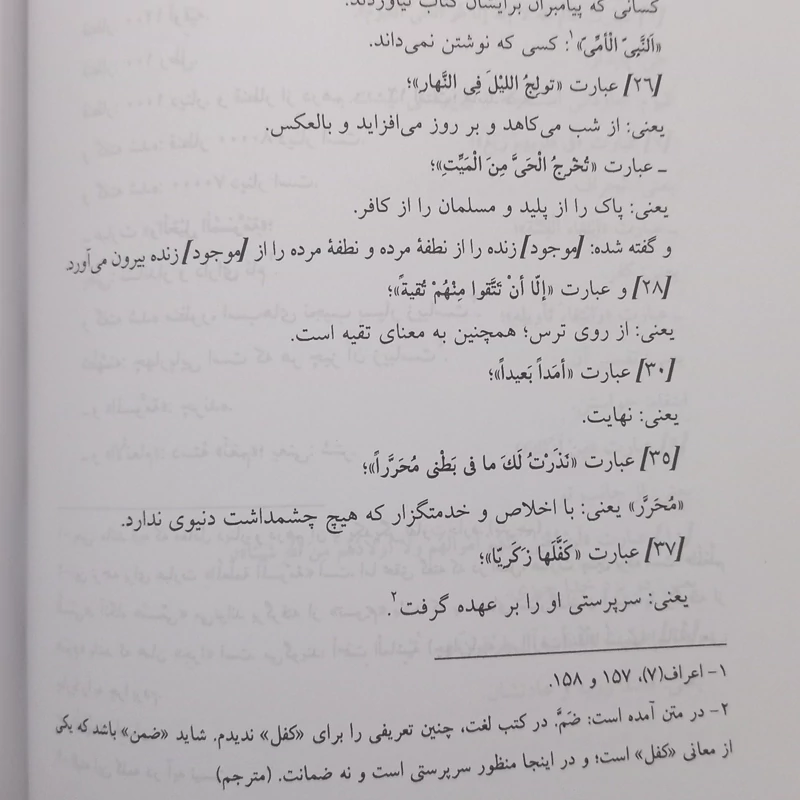 کسانی که پیامبران برایشان کتاب نیاوردند.
«اَلنَّبِیّ الْأمِّیّ»۱: کسی که نوشتن نمی‌داند.
[۲۶] عبارت «تولِجُ اللیْلَ فِی النَّهارِ»؛
یعنی: از شب می‌کاهد و بر روز می‌افزاید و بالعکس.
ـ عبارت «تُخْرِجُ الْحَیَّ مِنَ الْمَیِّتِ»؛
یعنی: پاک را از پلید و مسلمان را از کافر.
و گفته شده: [موجود] زنده را از نطفهٔ مرده و نطفهٔ مرده را از [موجود] زنده بیرون می‌آورد.
[۲۸] و عبارت «إلّا أنْ تَتَّقوا مِنْهُمْ تُقیةً»؛
یعنی: از روی ترس؛ همچنین به معنای تقیه است.
[۳۰] عبارت «أمَداً بَعیداً»؛
یعنی: نهایت.
[۳۵] عبارت «نَذَرْتُ لَکَ ما فی بَطْنی مُحَرَّراً»؛
«مُحَرَّر» یعنی: با اخلاص و خدمتگزار که هیچ چشمداشت دنیوی ندارد.
[۳۷] عبارت «کَفَّلَها زَکَرِیّا»؛
یعنی: سرپرستی او را بر عهده گرفت۲.
۱- اعراف(۷)، ۱۵۷ و ۱۵۸.
۲- در متن آمده است: ضَمَّ. در کتب لغت، چنین تعریفی را برای «کفل» ندیدم. شاید «ضمن» باشد که یکی
از معانی «کفل» است؛ و در اینجا منظور سرپرستی است و نه ضمانت. (مترجم)